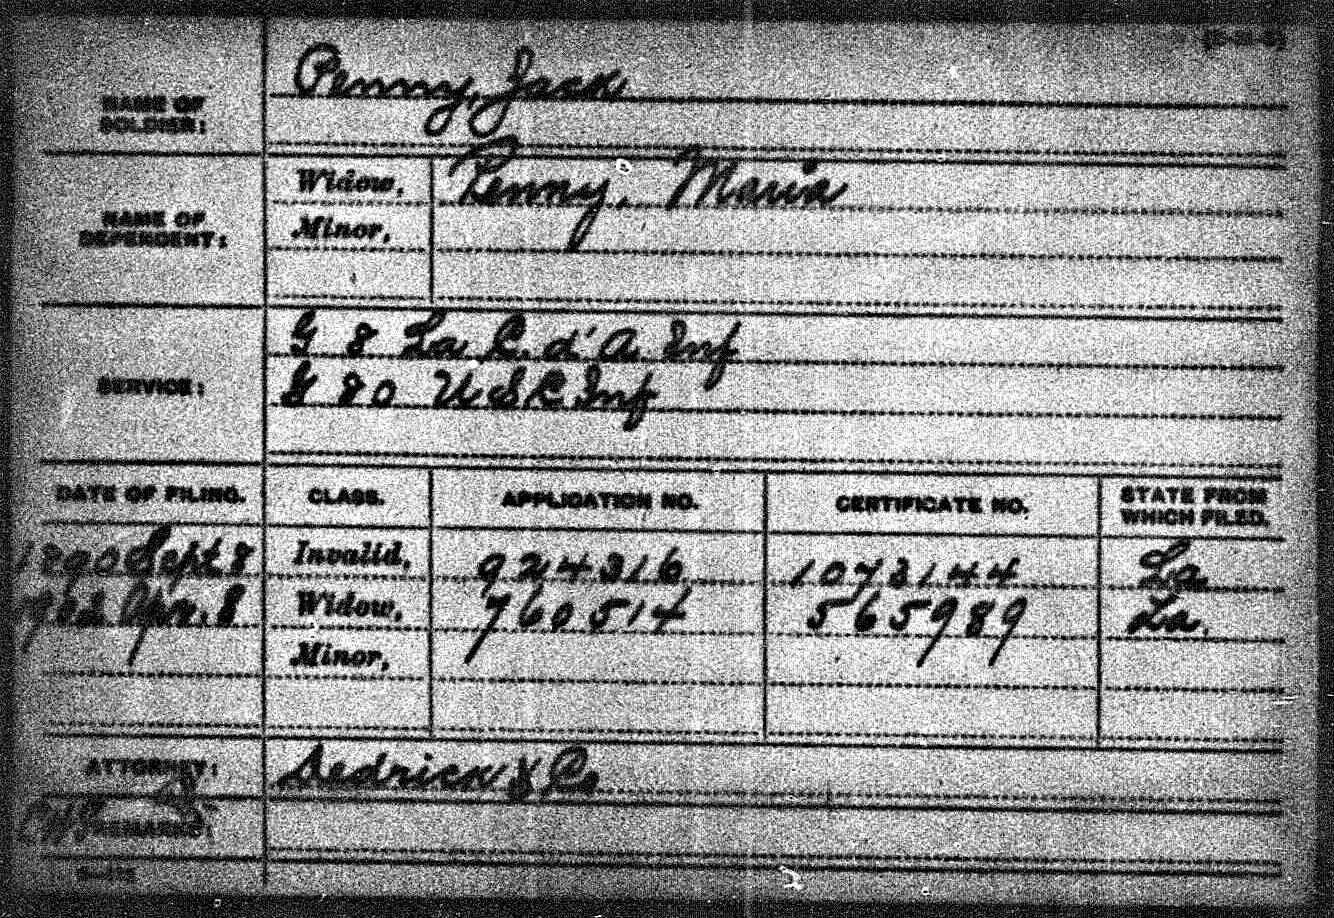 NAME OF SOLDIER: Penny, Jack
NAME OF DEPENDENT:
Widow, Penny, Maria
Minor,
SERVICE:
G 8 La C. d'A. Inf
G 80 U S C Inf
DATE OF FILING. CLASS. APPLICATION NO. CERTIFICATE NO. STATE FROM WHICH FILED.
1890 Sept 8 Invalid, 924316 1073144 La
1902 Apr. 8 Widow, 760514 565989 La.
Minor,
ATTORNEY: Dedrick & Co
REMARKS: